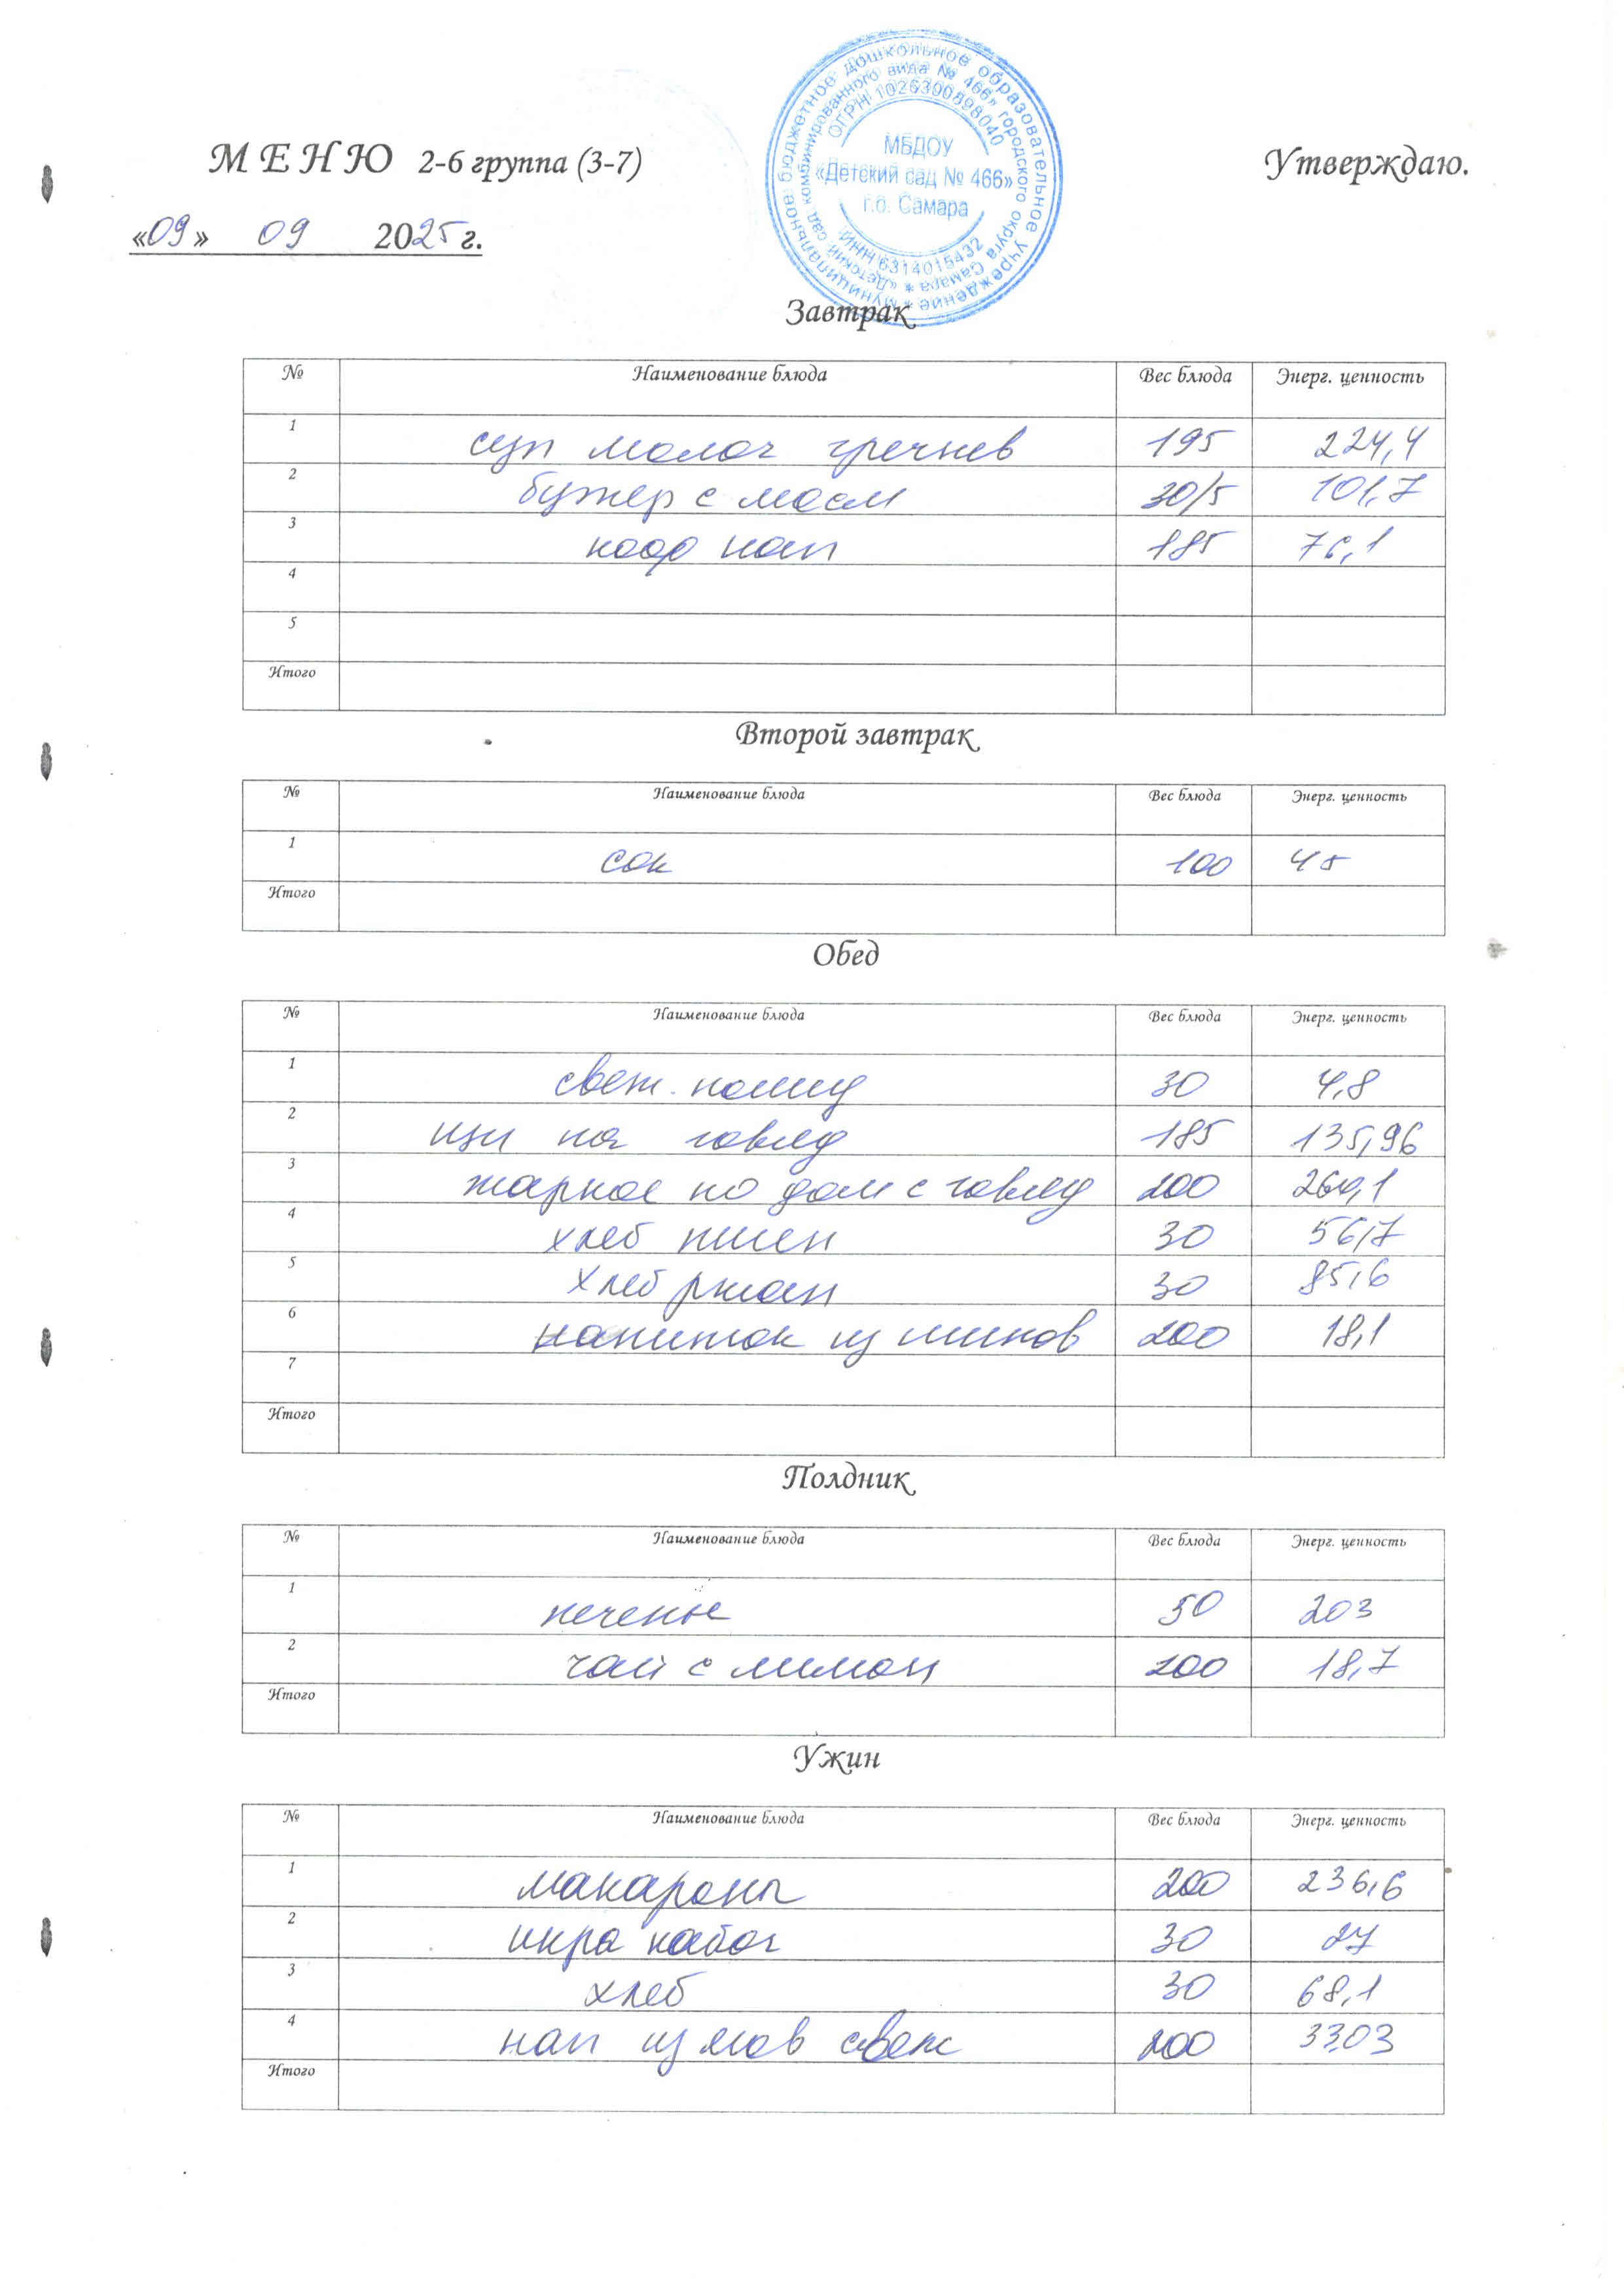 муниципальное бюджетное дошкольное образовательное учреждение
«Детский сад комбинированного вида № 466» городского округа Самара
ОГРН 1026300898040
МБДОУ
«Детский сад № 466»
г.о. Самара
ИНН 6314015432
МЕНЮ 2-6 группа (3-7) Утверждаю.
«09» 09 2025 г.
Завтрак
№ Наименование блюда Вес блюда Энерг. ценность
1 суп молоч гречнев 195 224,4
2 бутер с масл 30/5 101,7
3 нап 185 76,1
4
5
Итого
Второй завтрак
№ Наименование блюда Вес блюда Энерг. ценность
1 сок 100 45
Итого
Обед
№ Наименование блюда Вес блюда Энерг. ценность
1 свеж. помид 30 4,8
2 щи на говяд 185 135,96
3 жаркое по дом с говяд 200
4 хлеб пшен 30 56,7
5 хлеб ржан 30 85,6
6 напиток из шипов 200 18,1
7
Итого
Полдник
№ Наименование блюда Вес блюда Энерг. ценность
1 печенье 50 203
2 чай с лимон 200 18,7
Итого
Ужин
№ Наименование блюда Вес блюда Энерг. ценность
1 макароны 200 236,6
2 икра кабач 30 27
3 хлеб 30 68,1
4 нап из свеж 200
Итого